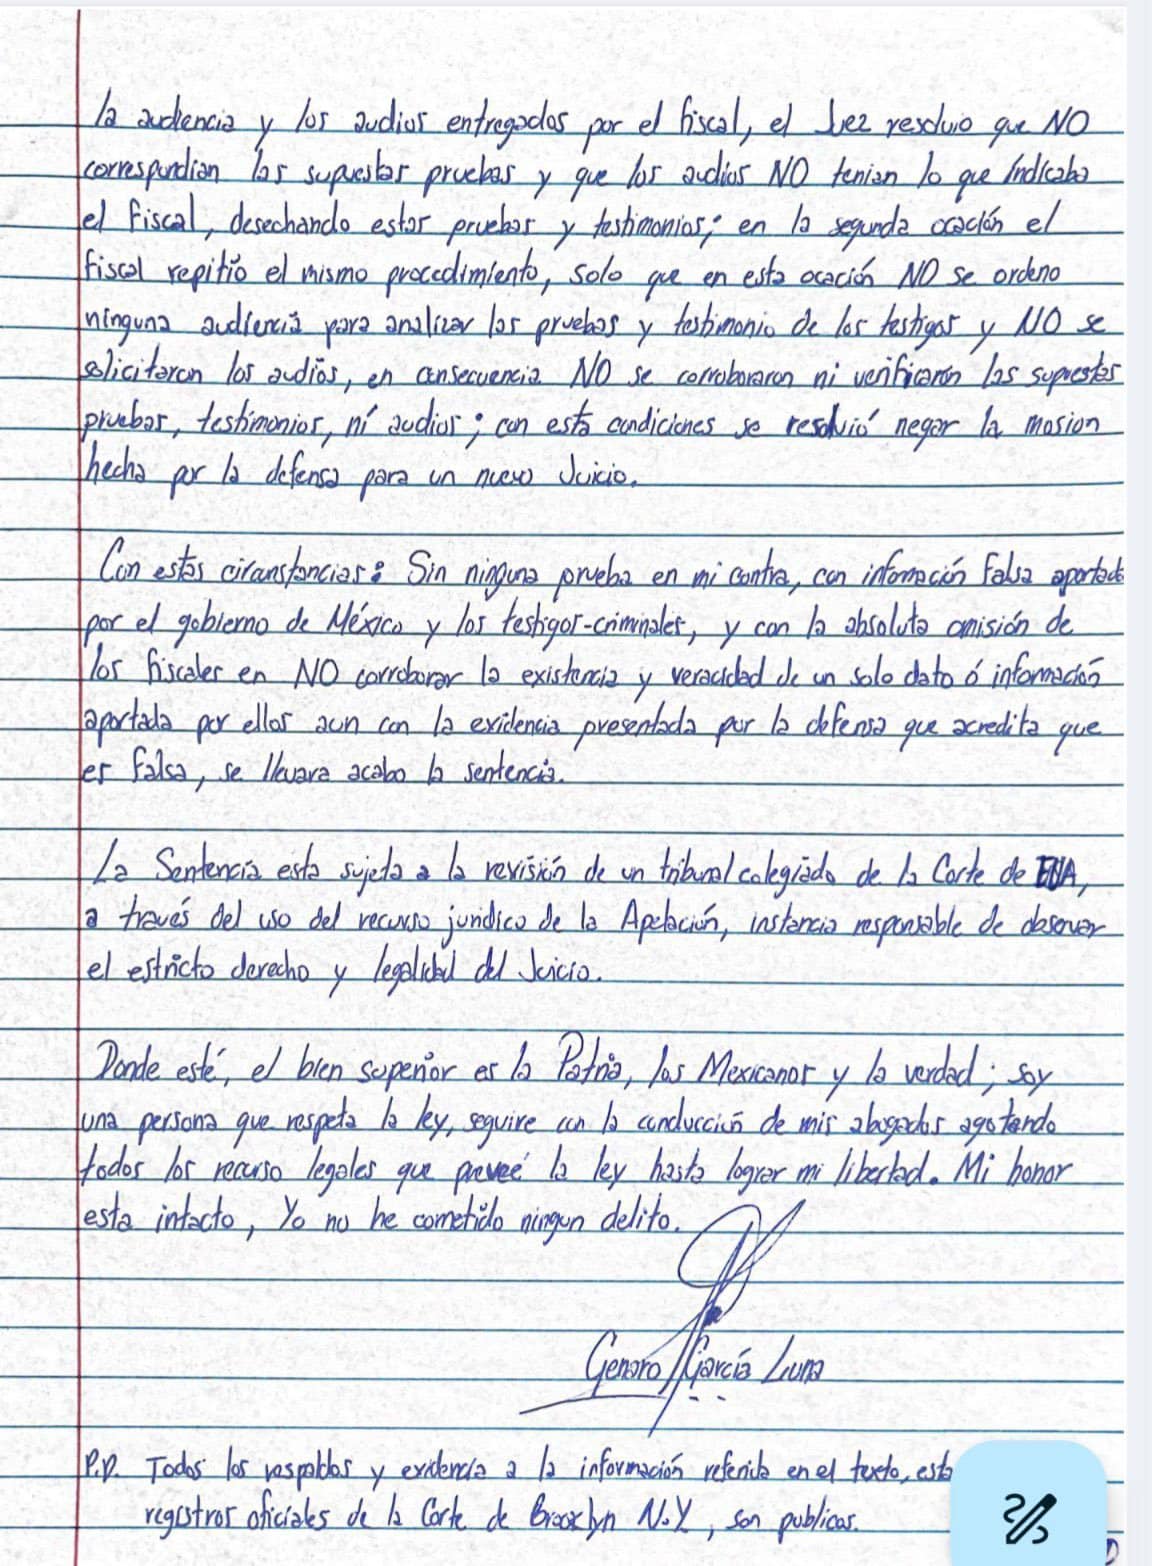 la audiencia y los audios entregados por el fiscal, el Juez resolvio que NO
correspondian las supuestas pruebas y que los audios NO tenian lo que indicaba
el fiscal, desechando estas pruebas y testimonios; en la segunda ocación el
fiscal repitio el mismo procedimiento, solo que en esta ocación NO se ordeno
ninguna audiencia para analizar las pruebas y testimonio de los testigos y NO se
solicitaron los audios, en consecuencia NO se corroboraron ni verificaron las supuestas
pruebas, testimonios, ni audios; con esta condiciones se resolvió negar la mosion
hecha por la defensa para un nuevo Juicio.
Con estas circunstancias: Sin ninguna prueba en mi contra, con información falsa aportada
por el gobierno de México y los testigos-criminales, y con la absoluta omisión de
los fiscales en NO corroborar la existencia y veracidad de un solo dato ó información
aportada por ellos aun con la evidencia presentada por la defensa que acredita que
es falsa, se llevara acabo la sentencia.
La Sentencia esta sujeta a la revisión de un tribunal colegiado de la Corte de EUA,
a través del uso del recurso juridico de la Apelación, instancia responsable de observar
el estricto derecho y legalidad del Juicio.
Donde esté, el bien superior es la Patria, los Mexicanos y la verdad; soy
una persona que respeta la ley, seguire con la conducción de mis abogados agotando
todos los recurso legales que preveé la ley hasta lograr mi libertad. Mi honor
esta intacto, Yo no he cometido ningun delito.
Genaro García Luna
P.D. Todos los respaldos y evidencia a la información referida en el texto, esta
registros oficiales de la Corte de Brooklyn N.Y, son publicos.